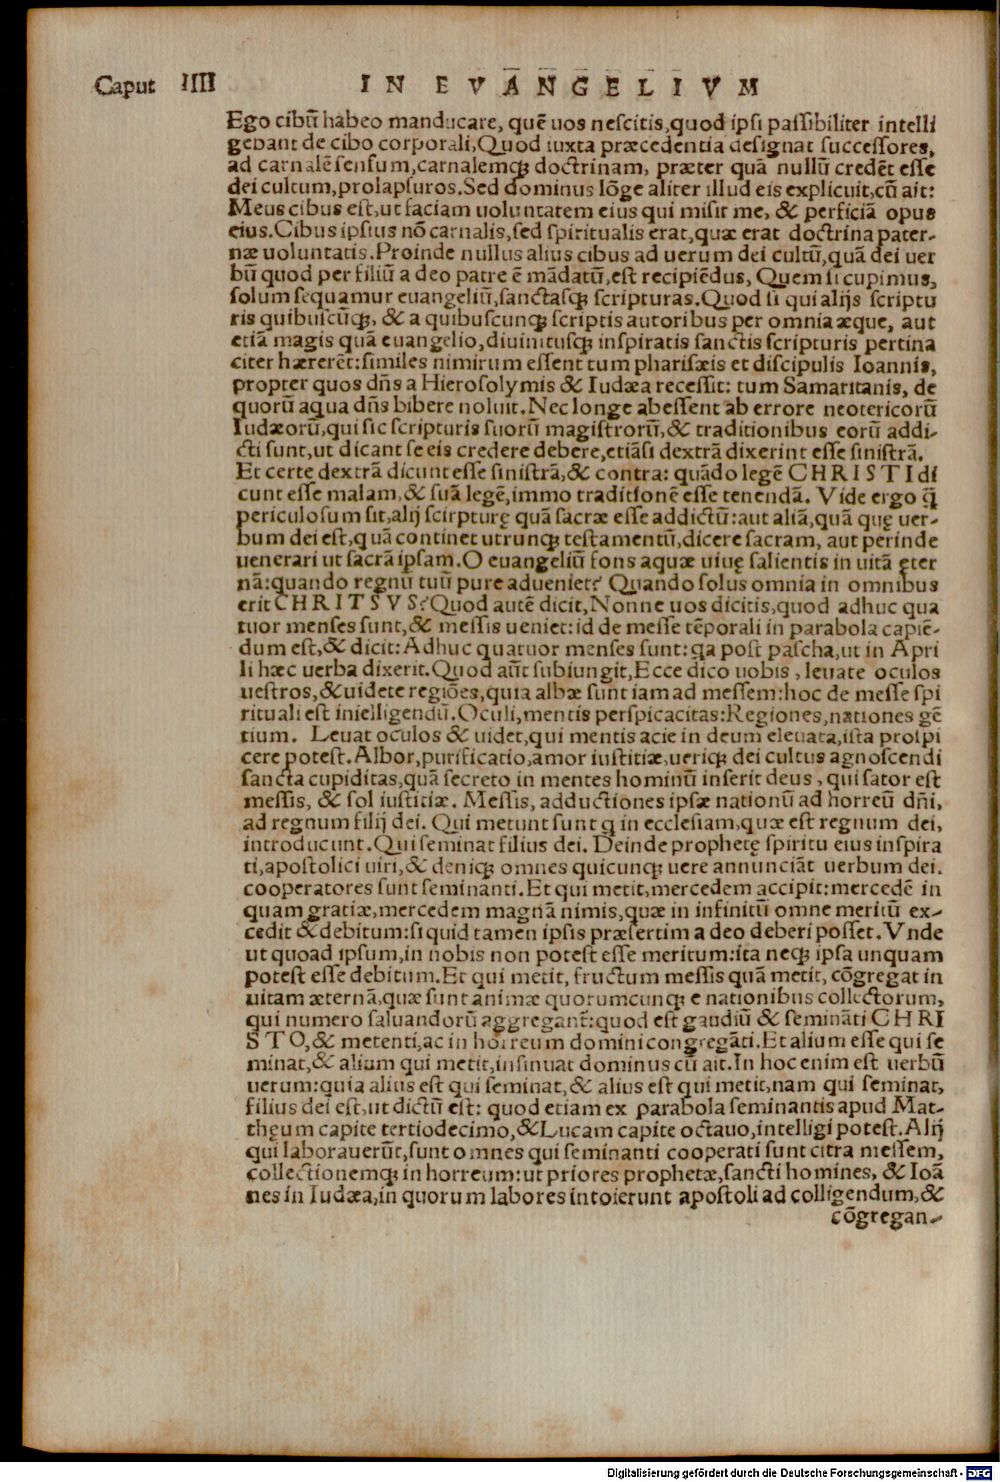 Caput IIII IN EVANGELIVM
Ego cibũ habeo manducare, quẽ uos nescitis, quod ipsi passibiliter intelli
gebant de cibo corporali, Quod iuxta præcedentia designat successores,
ad carnalẽ sensum, carnalemq; doctrinam, præter quã nullũ credẽt esse
dei cultum, prolapsuros. Sed dominus lõge aliter illud eis explicuit, cũ ait:
Meus cibus est, ut faciam uoluntatem eius qui misit me, & perficiã opus
eius. Cibus ipsius nõ carnalis, sed spiritualis erat, quæ erat doctrina pater-
næ uoluntatis. Proinde nullus alius cibus ad uerum dei cultũ, quã dei uer
bũ quod per filiũ a deo patre ẽ mãdatũ, est recipiẽdus, Quem si cupimus,
solum sequamur euangeliũ, sanctasq; scripturas. Quod si qui alijs scriptu
ris quibuscũq;, & a quibuscunq; scriptis autoribus per omnia æque, aut
etiã magis quã euangelio, diuinitusq; inspiratis sanctis scripturis pertina
citer hærerẽt: similes nimirum essent tum pharisæis et discipulis Ioannis,
propter quos dñs a Hierosolymis & Iudæa recessit: tum Samaritanis, de
quorũ aqua dñs bibere noluit. Nec longe abessent ab errore neotericorũ
Iudæorũ, qui sic scripturis suorũ magistrorũ, & traditionibus eorũ addi-
cti sunt, ut dicant se eis credere debere, etiãsi dextrã dixerint esse sinistrã.
Et certe dextrã dicunt esse sinistrã, & contra: quãdo legẽ CHRISTI di
cunt esse malam, & suã legẽ, immo traditionẽ esse tenendã. Vide ergo q̃
periculosum sit, alij scirpturę quã sacræ esse addictũ: aut aliã, quã quę uer-
bum dei est, quã continet utrunq; testamentũ, dicere sacram, aut perinde
uenerari ut sacrã ipsam. O euangeliũ fons aquæ uiuę salientis in uitã ęter
nã: quando regnũ tuũ pure adueniet? Quando solus omnia in omnibus
erit CHRITSVS? Quod autẽ dicit, Nonne uos dicitis, quod adhuc qua
tuor menses sunt, & messis ueniet: id de messe tẽporali in parabola capiẽ-
dum est, & dicit: Adhuc quatuor menses sunt: qa post pascha, ut in Apri
li hæc uerba dixerit. Quod aũt subiungit, Ecce dico uobis, leuate oculos
uestros, & uidete regiões, quia albæ sunt iam ad messem: hoc de messe spi
rituali est inielligendũ. Oculi, mentis perspicacitas: Regiones, nationes gẽ
tium. Leuat oculos & uidet, qui mentis acie in deum eleuata, ista prospi
cere potest. Albor, purificatio, amor iustitiæ, ueriq; dei cultus agnoscendi
sancta cupiditas, quã secreto in mentes hominũ inserit deus, qui sator est
messis, & sol iustitiæ. Messis, adductiones ipsæ nationũ ad horreũ dñi,
ad regnum filij dei. Qui metunt sunt q in ecclesiam, quæ est regnum dei,
introducunt. Qui seminat filius dei. Deinde prophetę spiritu eius inspira
ti, apostolici uiri, & deniq; omnes quicunq; uere annunciãt uerbum dei.
cooperatores sunt seminanti. Et qui metit, mercedem accipit: mercedẽ in
quam gratiæ, mercedem magnã nimis, quæ in infinitũ omne meritũ ex-
cedit & debitum: si quid tamen ipsis præsertim a deo deberi posset. Vnde
ut quoad ipsum, in nobis non potest esse meritum: ita neq; ipsa unquam
potest esse debitum. Et qui metit, fructum messis quã metit, cõgregat in
uitam æternã, quæ sunt animæ quorumcunq; e nationibus collectorum,
qui numero saluandorũ aggregant̃: quod est gaudiũ & seminãti CHRI
STO, & metenti, ac in horreum domini congregãti. Et alium esse qui se
minat, & alium qui metit, insinuat dominus cũ ait. In hoc enim est uerbũ
uerum: quia alius est qui seminat, & alius est qui metit, nam qui seminat,
filius dei est, ut dictũ est: quod etiam ex parabola seminantis apud Mat-
thęum capite tertiodecimo, & Lucam capite octauo, intelligi potest. Alij
qui laborauerũt, sunt omnes qui seminanti cooperati sunt citra messem,
collectionemq; in horreum: ut priores prophetæ, sancti homines, & Ioã
nes in Iudæa, in quorum labores intoierunt apostoli ad colligendum, &
cõgregan-
Digitalisierung gefördert durch die Deutsche Forschungsgemeinschaft - DFG